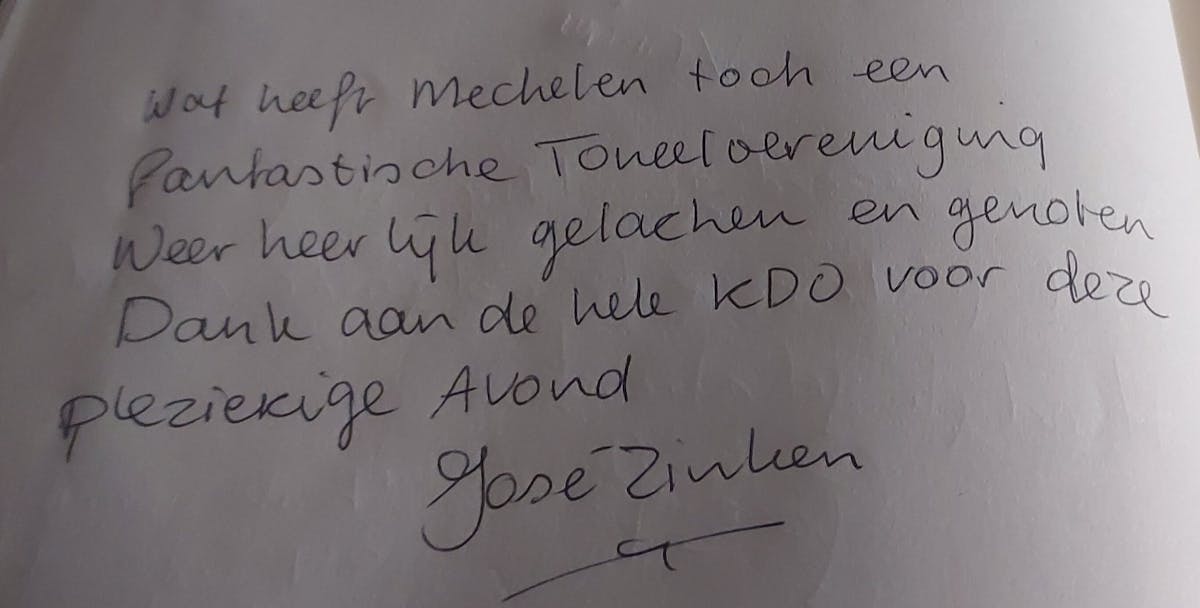 Wat heeft Mechelen toch een
fantastische Toneelvereniging
Weer heerlijk gelachen en genoten
Dank aan de hele KDO voor deze
plezierige Avond
José Zinken